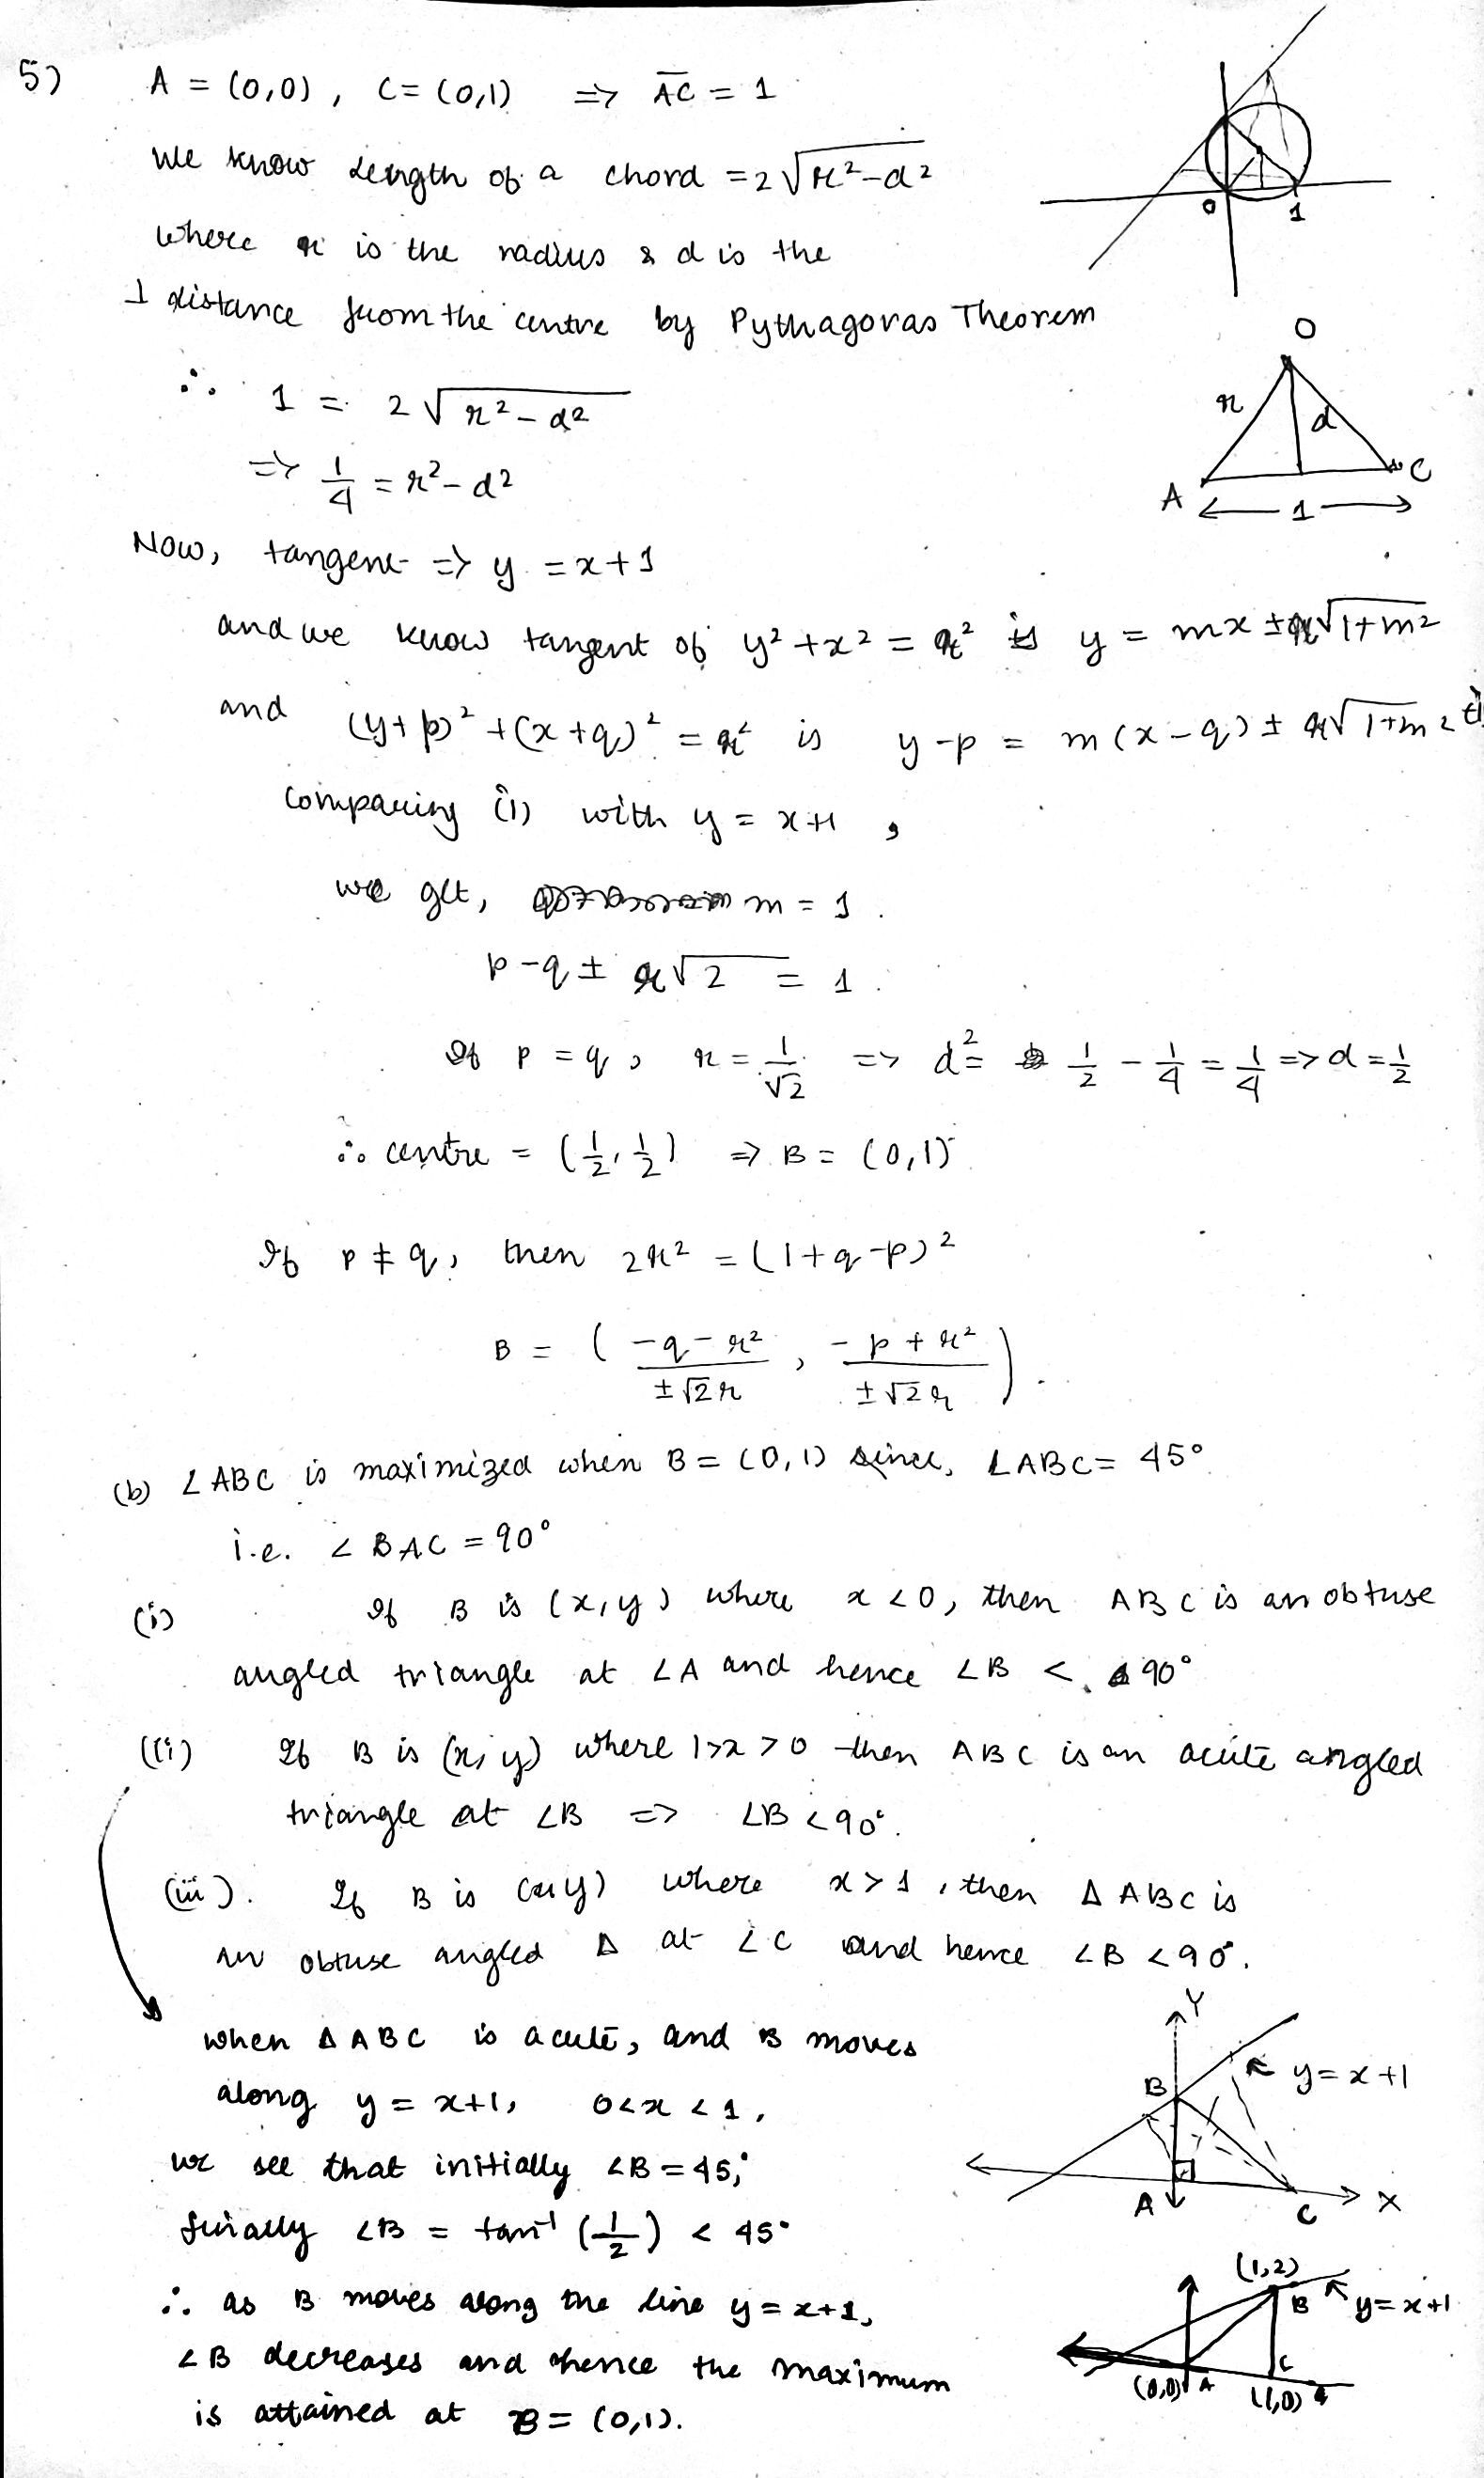 5) A = (0,0), C = (0,1) => AC = 1
We know length of a chord = 2√r²-d²
where r is the radius & d is the
⊥ distance from the centre by Pythagoras Theorem
∴ 1 = 2√r²-d²
=> 1/4 = r²-d²
Now, tangent => y = x+1
and we know tangent of y²+x² = r² is y = mx ± r√1+m²
and (y+p)² + (x+q)² = r² is y-p = m(x-q) ± r√1+m²
comparing (i) with y = x+1,
we get, m = 1.
p-q ± r√2 = 1.
If p = q, r = 1/√2 => d² = 1/2 - 1/4 = 1/4 => d = 1/2
∴ centre = (1/2, 1/2) => B = (0,1)
If p ≠ q, then 2r² = (1+q-p)²
B = ( -q-r² / ±√2r , -p+r² / ±√2r ).
(b) ∠ABC is maximized when B = (0,1) since, ∠ABC = 45°
i.e. ∠BAC = 90°
(i) If B is (x,y) where x<0, then ABC is an obtuse
angled triangle at ∠A and hence ∠B < 90°
(ii) If B is (x,y) where 1>x>0 then ABC is an acute angled
triangle at ∠B => ∠B < 90°.
(iii). If B is (x,y) where x>1, then Δ ABC is
an obtuse angled Δ at ∠C and hence ∠B < 90°.
when Δ ABC is acute, and B moves
along y = x+1, 0<x<1,
we see that initially ∠B = 45°,
finally ∠B = tan⁻¹(1/2) < 45°
∴ as B moves along the line y = x+1,
∠B decreases and hence the maximum
is attained at B = (0,1).
0
1
O
r
d
A
C
1
Y
B
y = x+1
A
C
X
(1,2)
B
y = x+1
C
(0,0) A
(1,0)